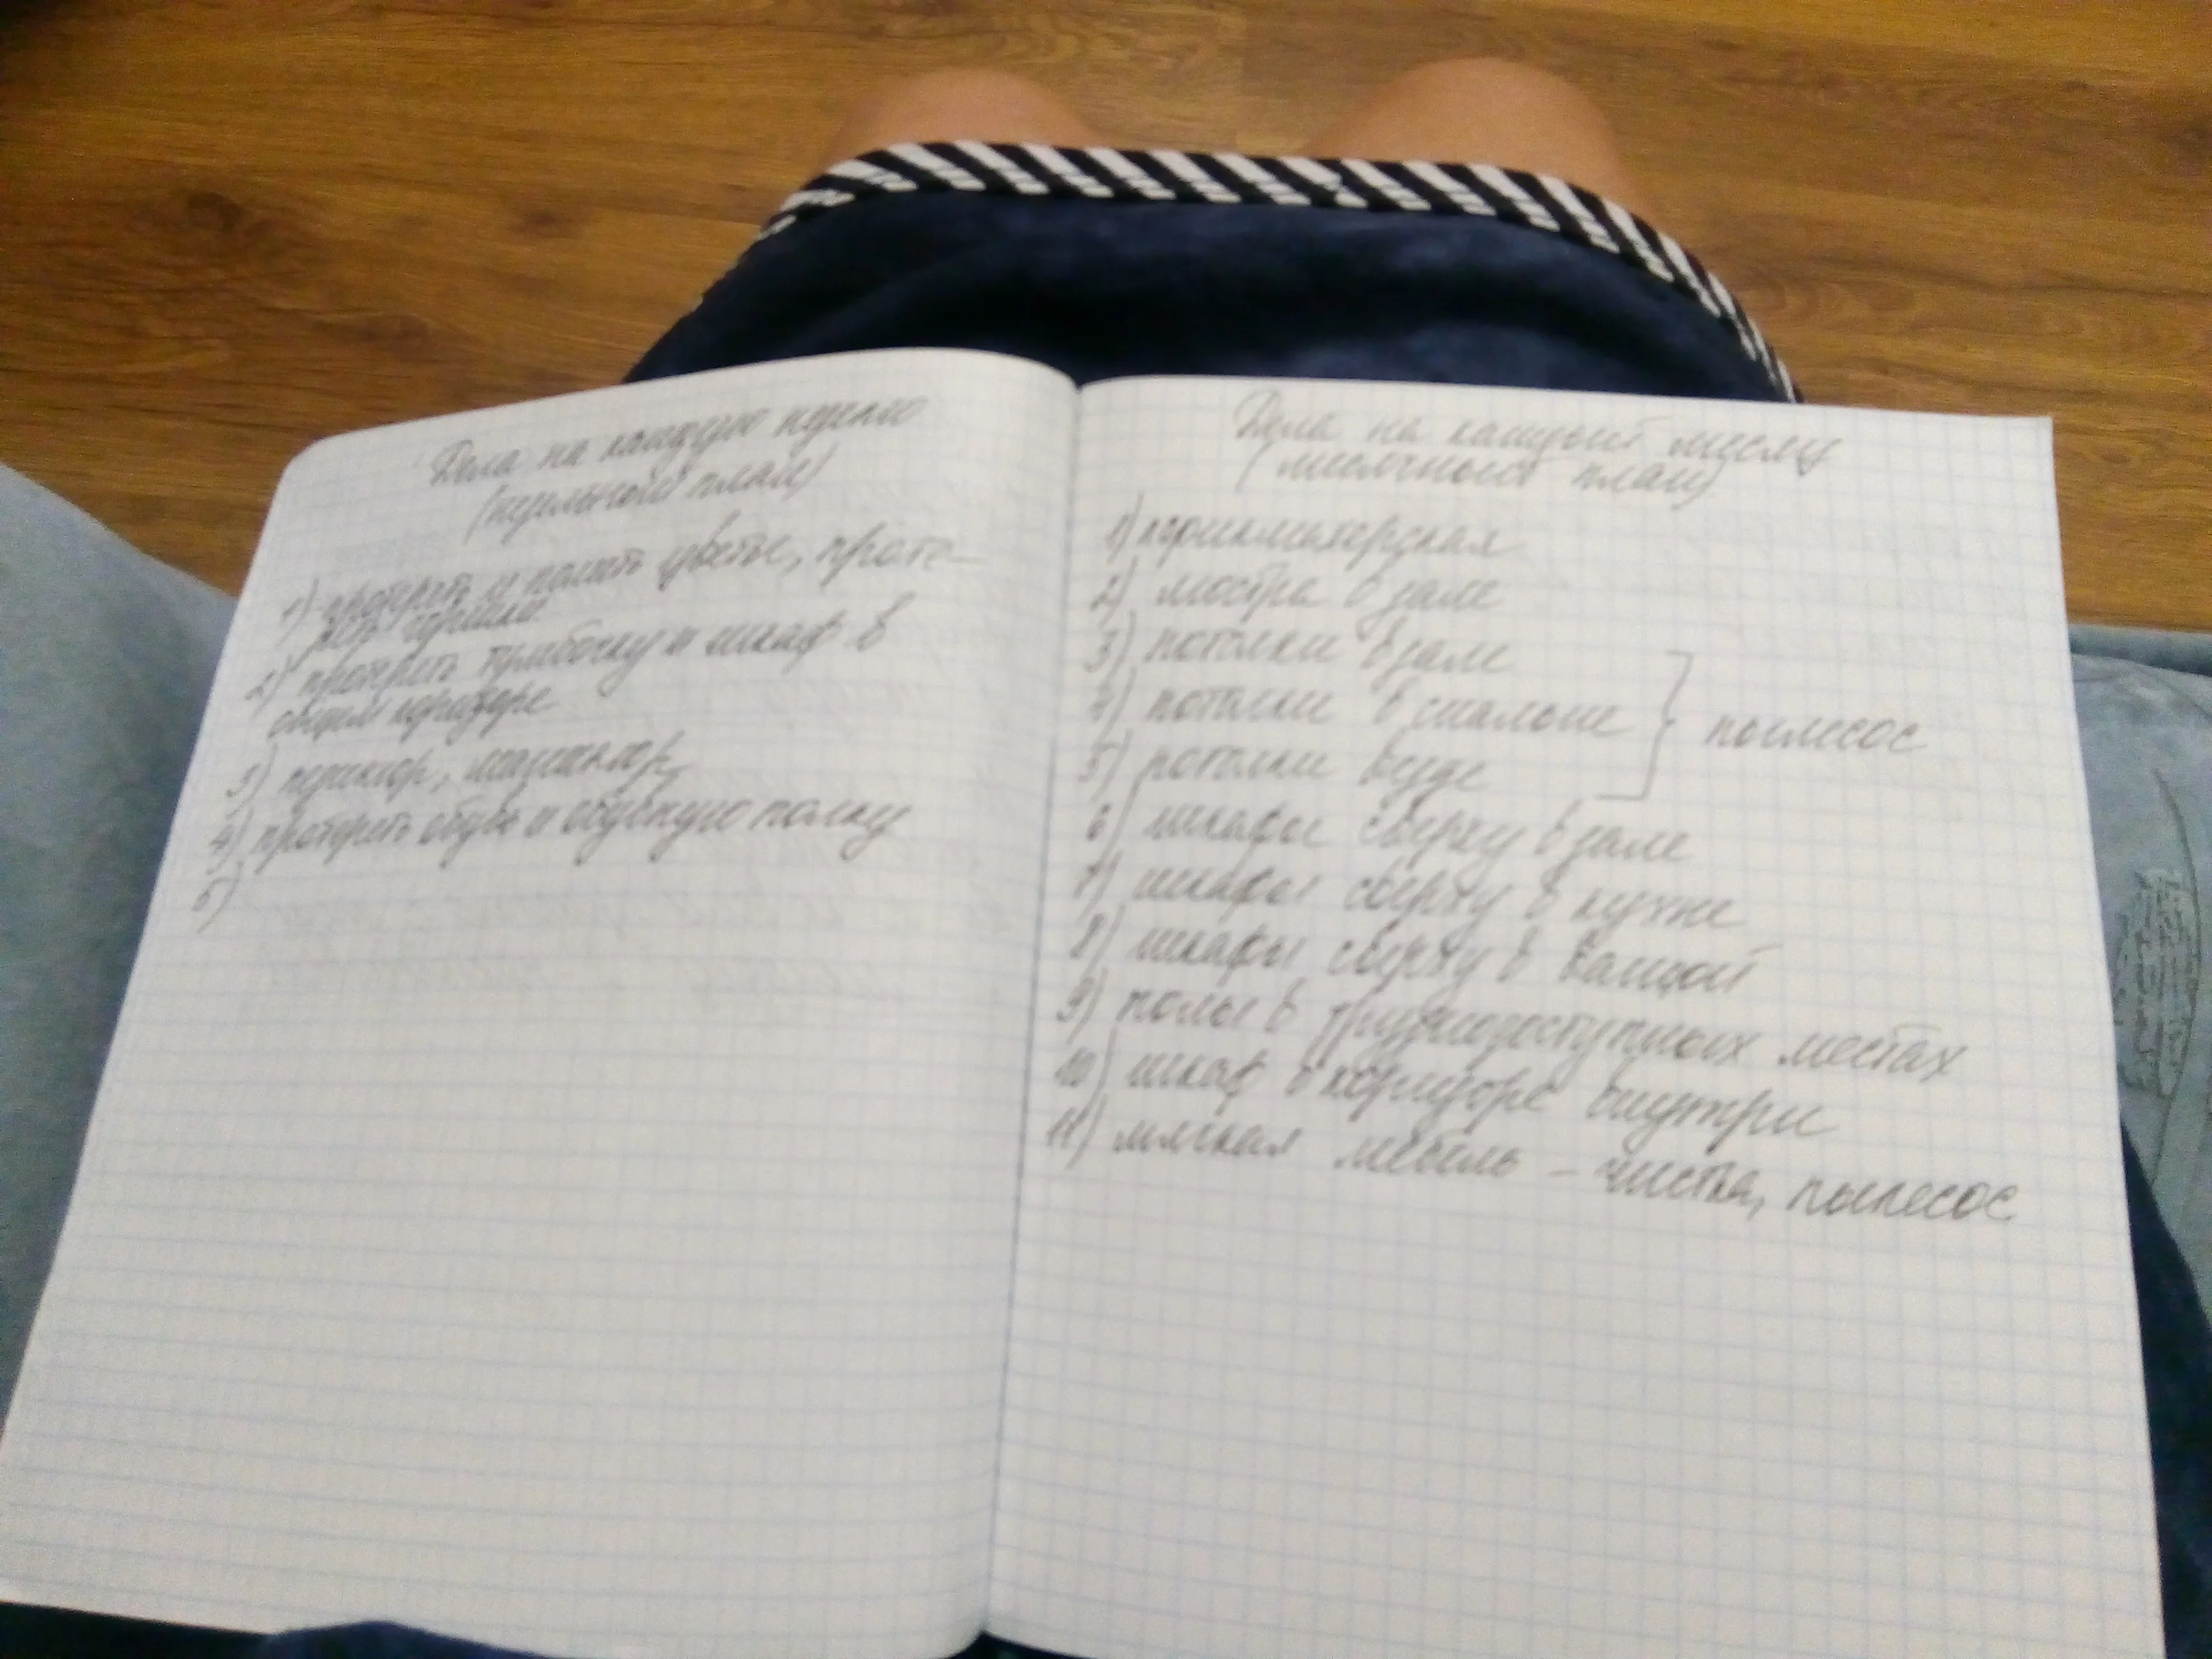 Дела на каждую неделю
(недельный план)
1) протереть и полить цветы, проте-
реть горшки
2) протереть тумбочку и шкаф в
общем коридоре
3) педикюр, маникюр
4) протереть обувь и обувную полку
5)
Дела на каждый месяц
(месячный план)
1) парикмахерская
2) люстра в зале
3) потолки в зале
4) потолки в спальне
5) потолки везде
пылесос
6) шкафы сверху в зале
7) шкафы сверху в кухне
8) шкафы сверху в ванной
9) полы в труднодоступных местах
10) шкаф в коридоре внутри
11) мягкая мебель – чистка, пылесос